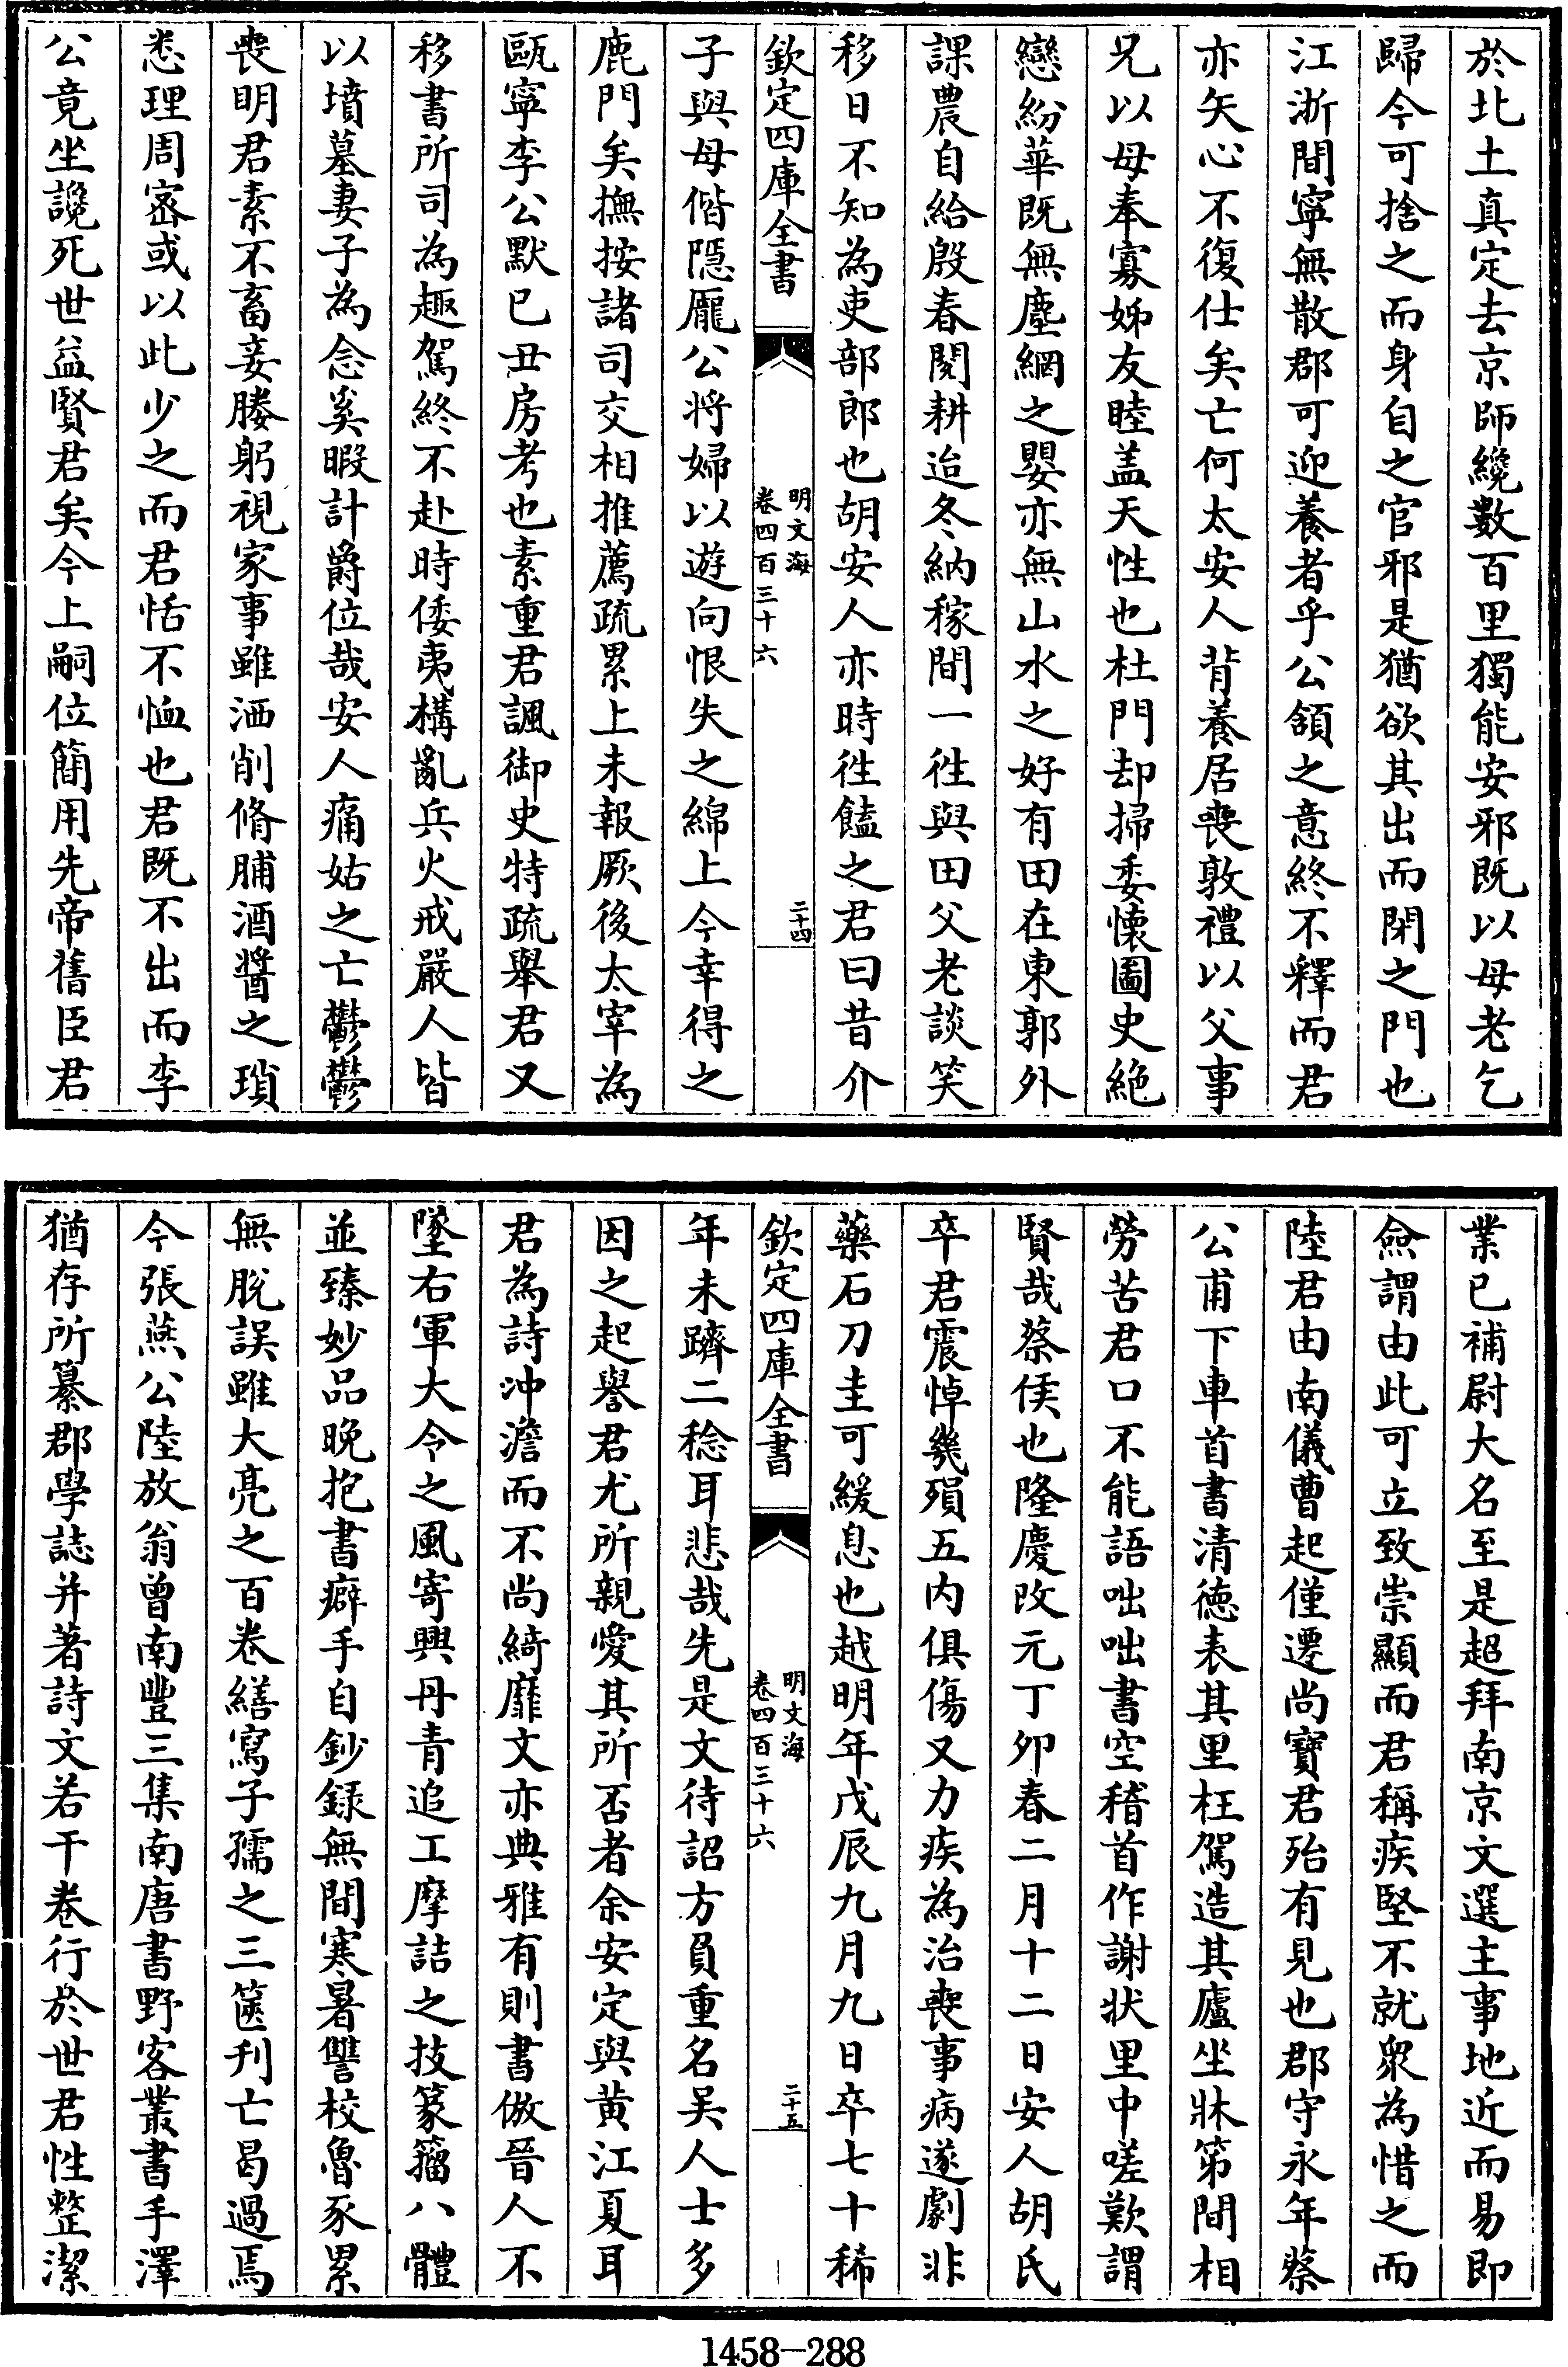 於北土真定去京師纔數百里獨能安邪既以母老乞
歸今可捨之而身自之官邪是猶欲其出而閉之門也
江浙間寧無散郡可迎養者乎公頷之意終不釋而君
亦矢心不復仕矣亡何太安人背養居喪敦禮以父事
兄以母奉寡姊友睦盖天性也杜門却掃委懷圖史絶
戀紛華既無塵網之嬰亦無山水之好有田在東郭外
課農自給殷春閱耕迨冬納稼間一徃與田父老談笑
移日不知為吏部郎也胡安人亦時徃饁之君曰昔介
欽定四庫全書
明文海
卷四百三十六
二十四
子與母偕隠龎公将婦以遊向恨失之綿上今幸得之
鹿門矣撫按諸司交相推薦疏累上未報厥後太宰為
甌寧李公默已丑房考也素重君諷御史特疏舉君又
移書所司為趣駕終不赴時倭夷構亂兵火戒嚴人皆
以墳墓妻子為念奚暇計爵位哉安人痛姑之亡鬱鬱
喪明君素不畜妾媵躬視家事雖洒削脩脯酒醬之瑣
悉理周宻或以此少之而君恬不恤也君既不出而李
公竟坐讒死世益賢君矣今上嗣位簡用先帝舊臣君
業已補尉大名至是超拜南京文選主事地近而易即
僉謂由此可立致崇顯而君稱疾堅不就衆為惜之而
陸君由南儀曹起僅遷尚寶君殆有見也郡守永年蔡
公甫下車首書清德表其里枉駕造其廬坐牀笫間相
勞苦君口不能語咄咄書空稽首作謝狀里中嗟歎謂
賢哉蔡侯也隆慶改元丁夘春二月十二日安人胡氏
卒君震悼幾殞五内俱傷又力疾為治喪事病遂劇非
藥石刀圭可緩息也越明年戊辰九月九日卒七十稀
欽定四庫全書
明文海
卷四百三十六
二十五
年未躋二稔耳悲哉先是文待詔方負重名吴人士多
因之起譽君尤所親愛其所否者余安定與黄江夏耳
君為詩冲澹而不尚綺靡文亦典雅有則書倣晉人不
墜右軍大令之風寄興丹青追工摩詰之技篆籀八體
並臻妙品晚抱書癖手自鈔録無間寒暑讐校魯豕累
無脱誤雖大亮之百卷繕寫子孺之三篋刋亡曷過焉
今張燕公陸放翁曾南豐三集南唐書野客叢書手澤
猶存所纂郡學誌并著詩文若干卷行於世君性整潔
1458-288